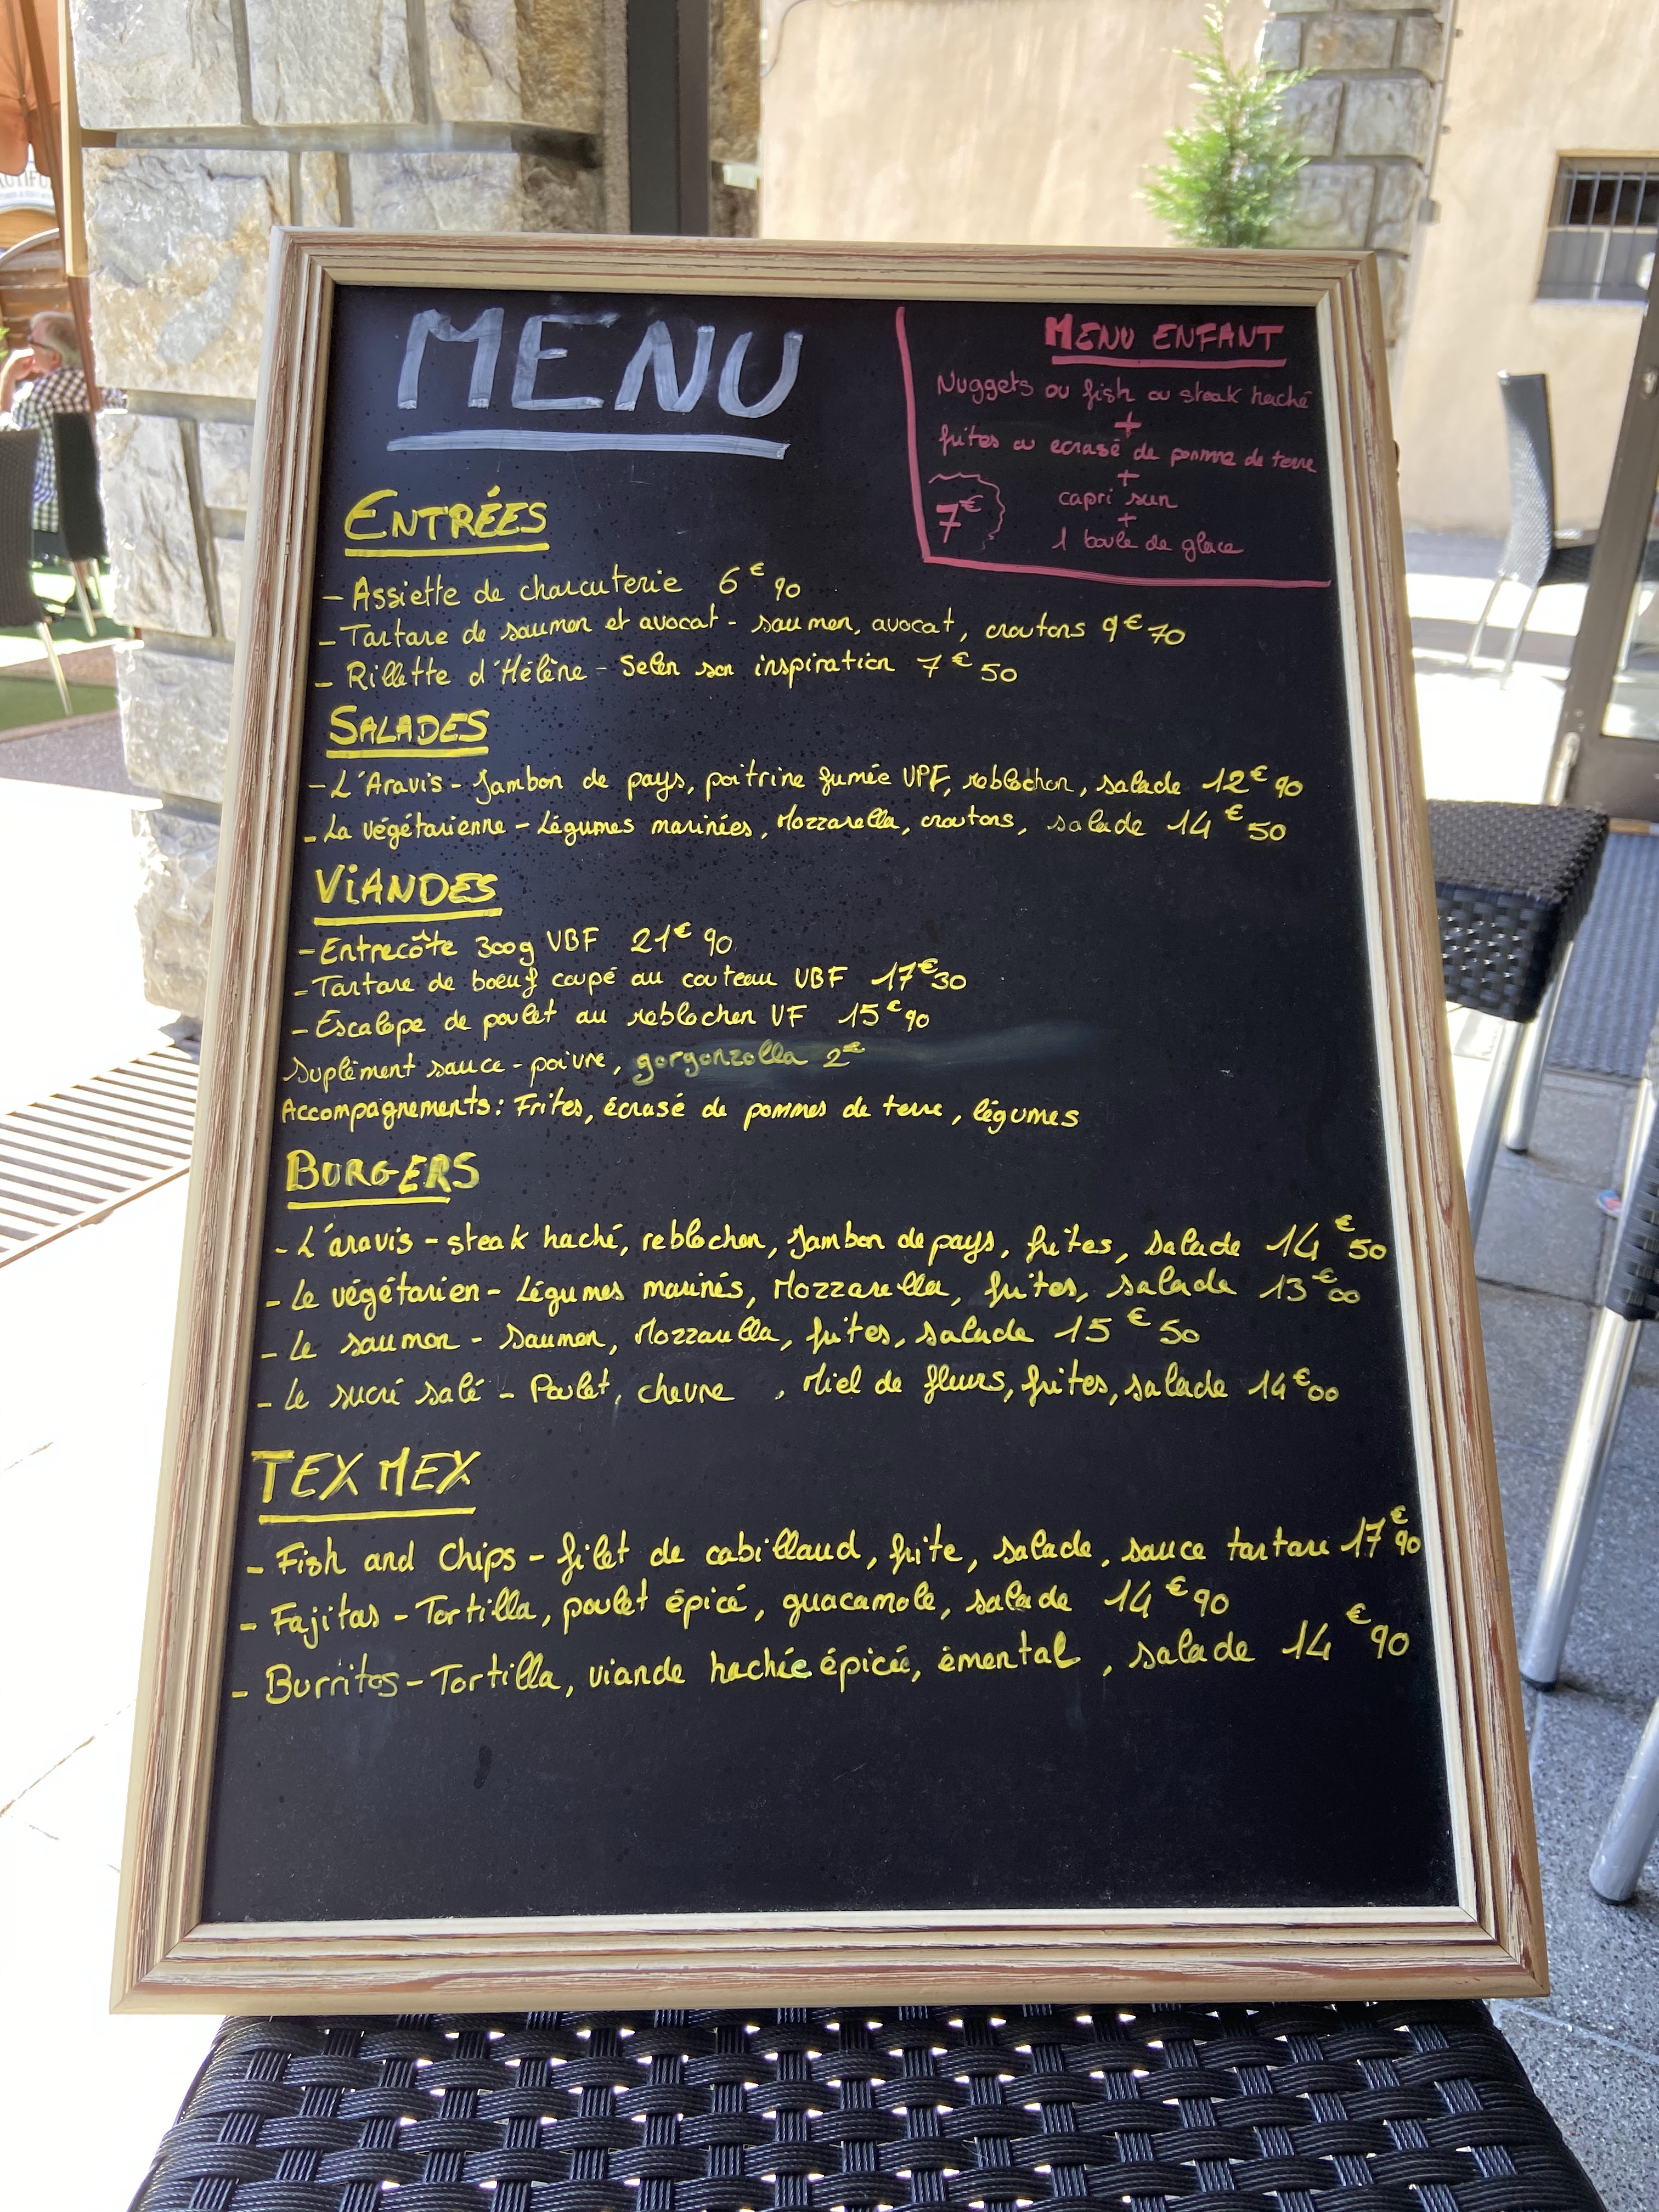 MENU
MENU ENFANT
Nuggets ou fish ou steak haché
+
frites ou ecrasé de pomme de terre
+
capri sun
+
1 boule de glace
7€
ENTRÉES
- Assiette de charcuterie 6€90
- Tartare de saumon et avocat - saumon, avocat, croutons 9€70
- Rillette d'Hélène - Selon son inspiration 7€50
SALADES
- L'Aravis - Jambon de pays, poitrine fumée VPF, reblochon, salade 12€90
- La végétarienne - Légumes marinées, Mozzarella, croutons, salade 14€50
ViANDES
- Entrecôte 300g VBF 21€90
- Tartare de boeuf coupé au couteau VBF 17€30
- Escalope de poulet au reblochon VF 15€90
Suplément sauce - poivre, gorgonzolla 2€
Accompagnements: Frites, écrasé de pommes de terre, légumes
BURGERS
- L'aravis - steak haché, reblochon, Jambon de pays, frites, salade 14€50
- Le végétarien - Légumes marinés, Mozzarella, frites, salade 13€00
- Le saumon - Saumon, Mozzarella, frites, salade 15€50
- Le sucré salé - Poulet, chevre , Miel de fleurs, frites, salade 14€00
TEX MEX
- Fish and Chips - filet de cabillaud, frite, salade, sauce tartare 17€90
- Fajitas - Tortilla, poulet épicé, guacamole, salade 14€90
- Burritos - Tortilla, viande hachée épicée, émental , salade 14€90